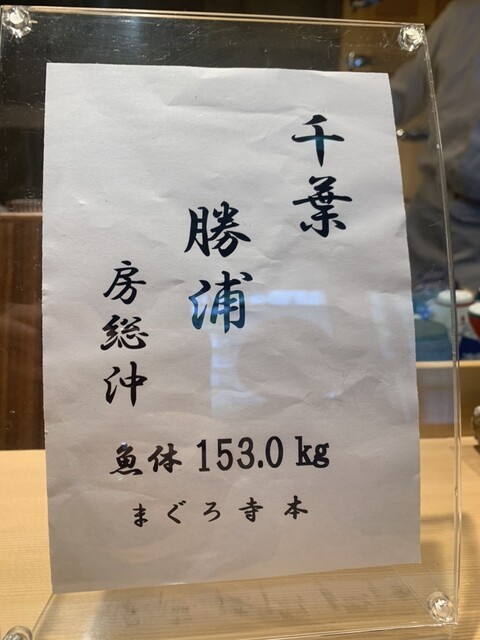 千葉
勝浦
房総沖
魚体 153.0 kg
まぐろ寺本